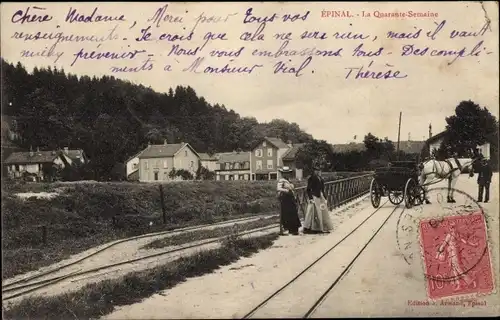 Chère Madame, Merci pour tous vos
ÉPINAL. - La Quarante-Semaine
renseignements - Je crois que cela ne sera rien, mais il vaut
mieux prévenir - Nous vous embrassons tous - Des compli-
ments à Monsieur Vial.
Thérèse
Edition A. Armand, Epinal